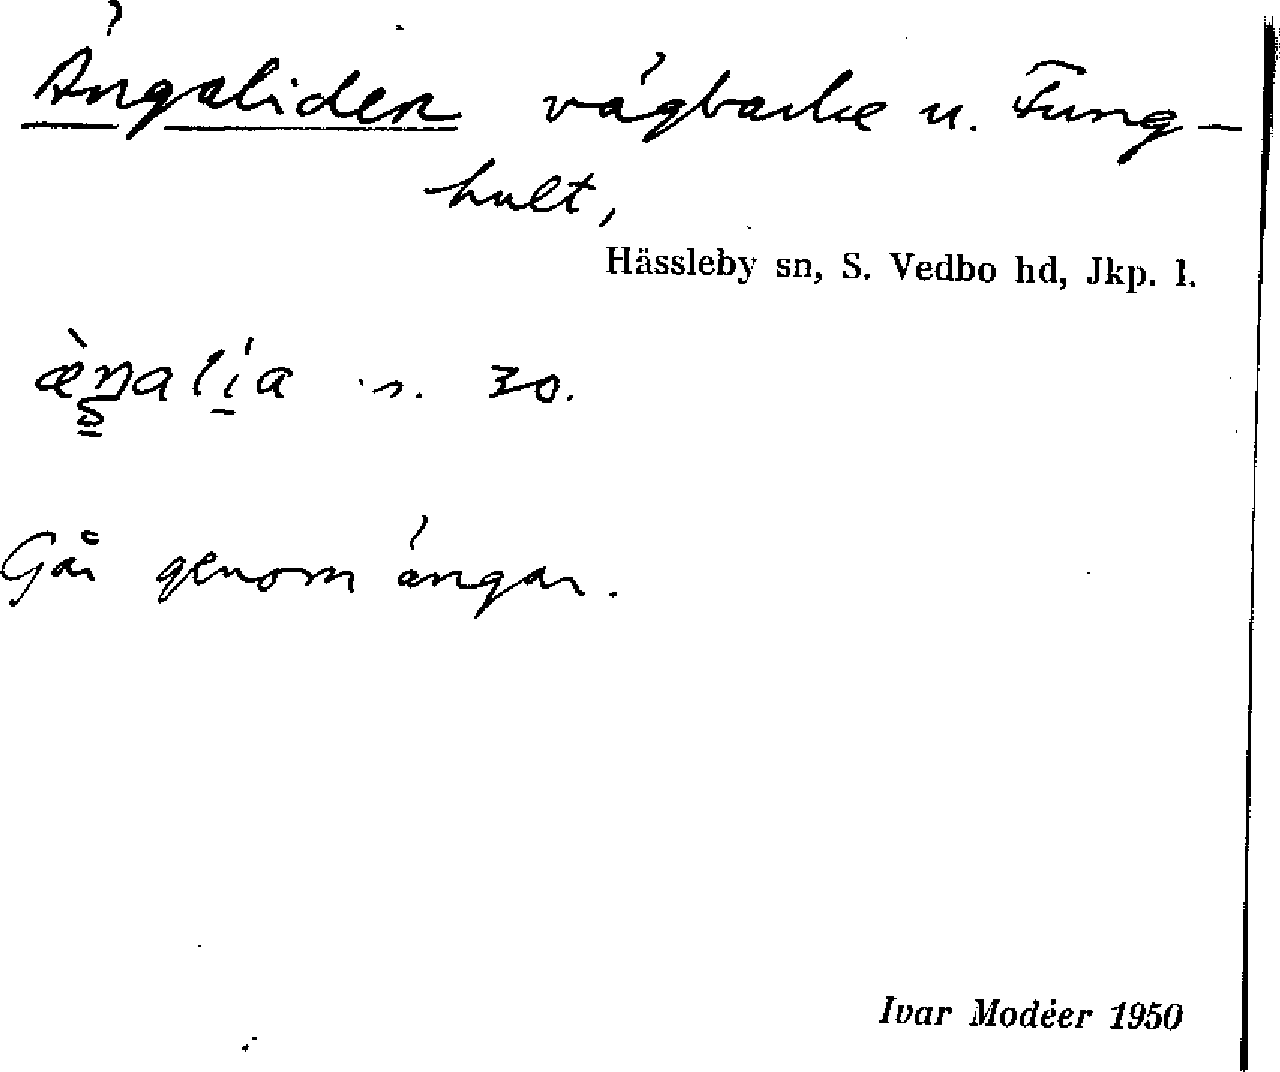 Ängaliden vägbacke u. Fung-
hult,
Hässleby sn, S. Vedbo hd, Jkp. l.
s. 30.
Går genom ängar.
Ivar Modéer 1950